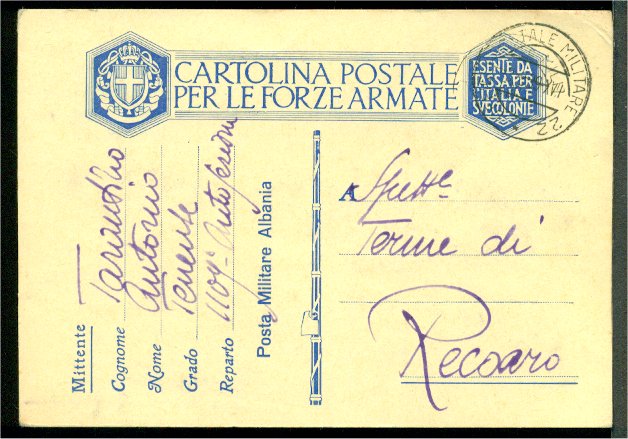 CARTOLINA POSTALE
PER LE FORZE ARMATE
ESENTE DA
TASSA PER
L'ITALIA E
SUE COLONIE
POSTALE MILITARE
22
Mittente
Cognome Tarantino
Nome Antonio
Grado Tenente
Reparto
Posta Militare Albania
A Spett.
Terme di
Recoaro